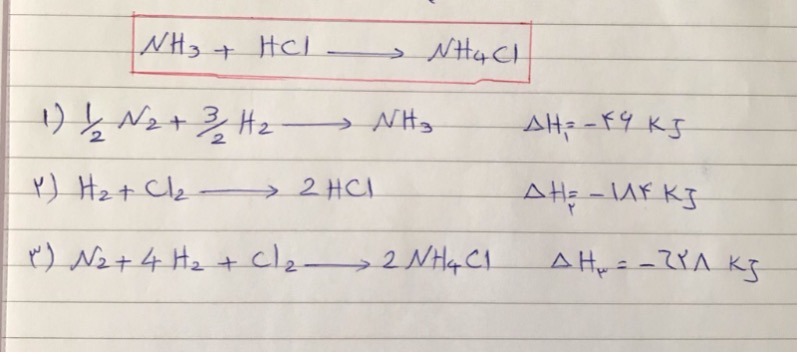 NH3 + HCl ⟶ NH4Cl
۱) 1/2 N2 + 3/2 H2 ⟶ NH3 ΔH۱ = -۴۶ KJ
۲) H2 + Cl2 ⟶ 2 HCl ΔH۲ = -۱۸۴ KJ
۳) N2 + 4 H2 + Cl2 ⟶ 2 NH4Cl ΔH۳ = -۶۲۸ KJ